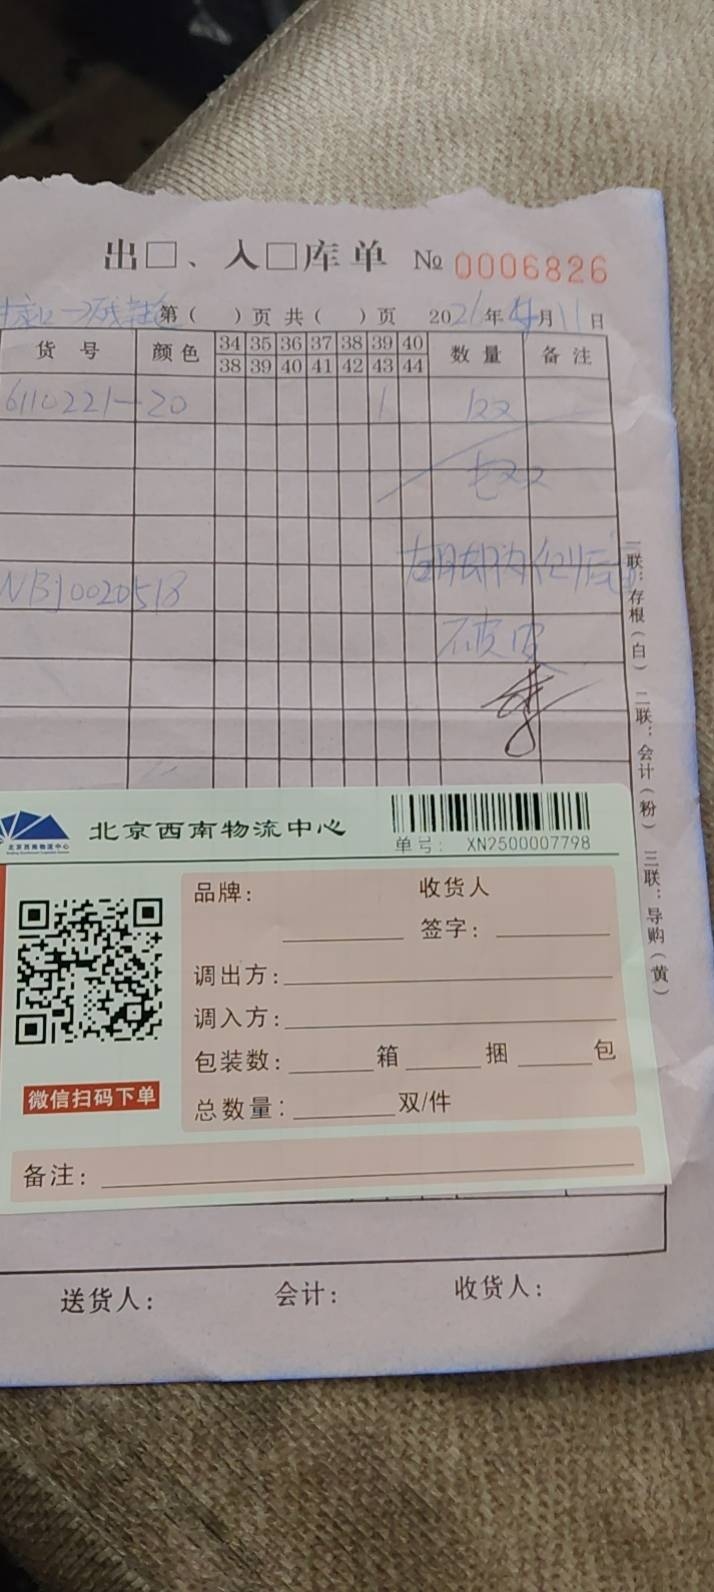 出□、入□库单 № 0006826
第( )页 共( )页 2021年4月11日
货号 颜色 34 35 36 37 38 39 40 数量 备注
38 39 40 41 42 43 44
6110221-20 1 1双
七双
NB10020518
破皮
一联:存根(白) 二联:会计(粉) 三联:导购(黄)
北京西南物流中心
北京西南物流中心
单号: XN2500007798
品牌: 收货人
签字:
调出方:
调入方:
包装数: 箱 捆 包
微信扫码下单
总数量: 双/件
备注:
送货人: 会计: 收货人: